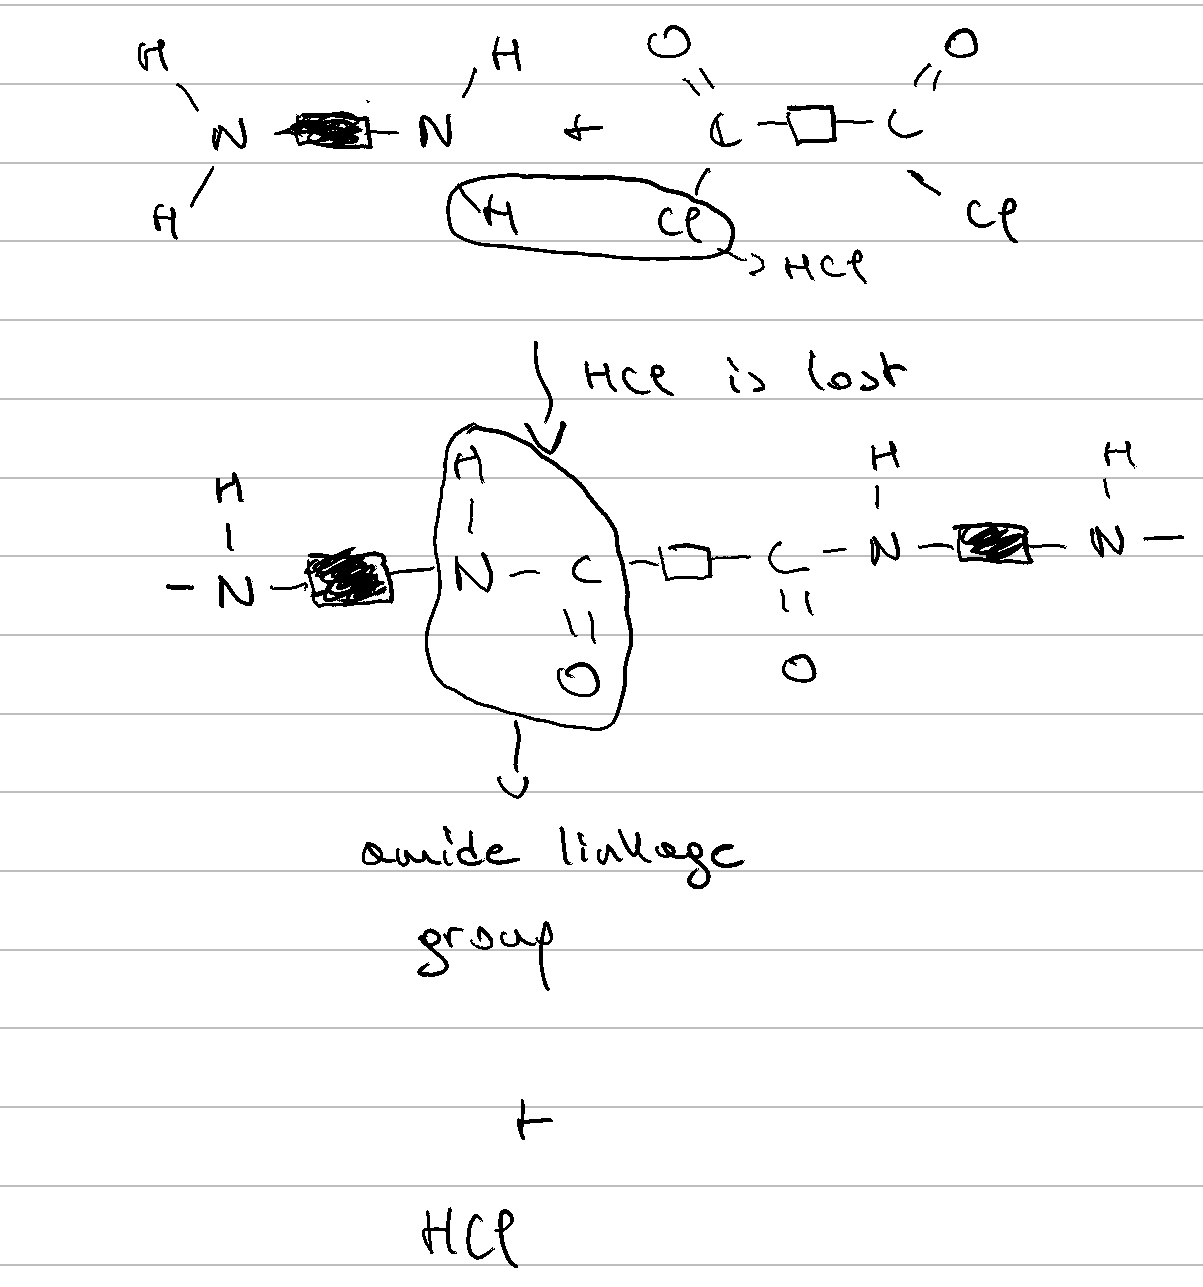 H H O O
N N + C C
H H Cl Cl
HCl
HCl is lost
H H H H
N N C C N N
O O
amide linkage
group
+
HCl